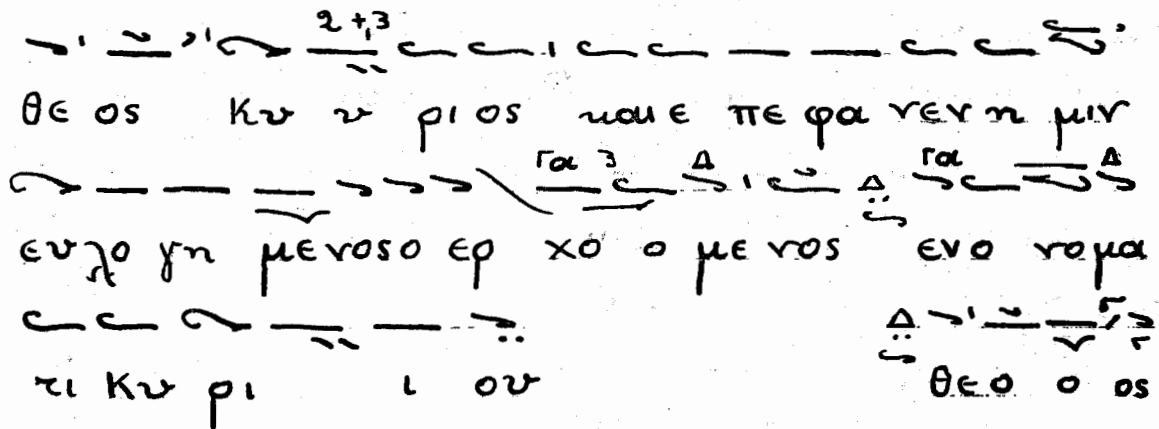 2 + 3
θε ος Κυ υ ρι ος και ε πε φα νεν η μιν
Γα 3 Δ Δ Γα Δ
ευ λο γη μενοσο ερ χο ο με νος ενο νομα
Δ Γ Γ
τι Κυ ρι ι ου θεο ο ος